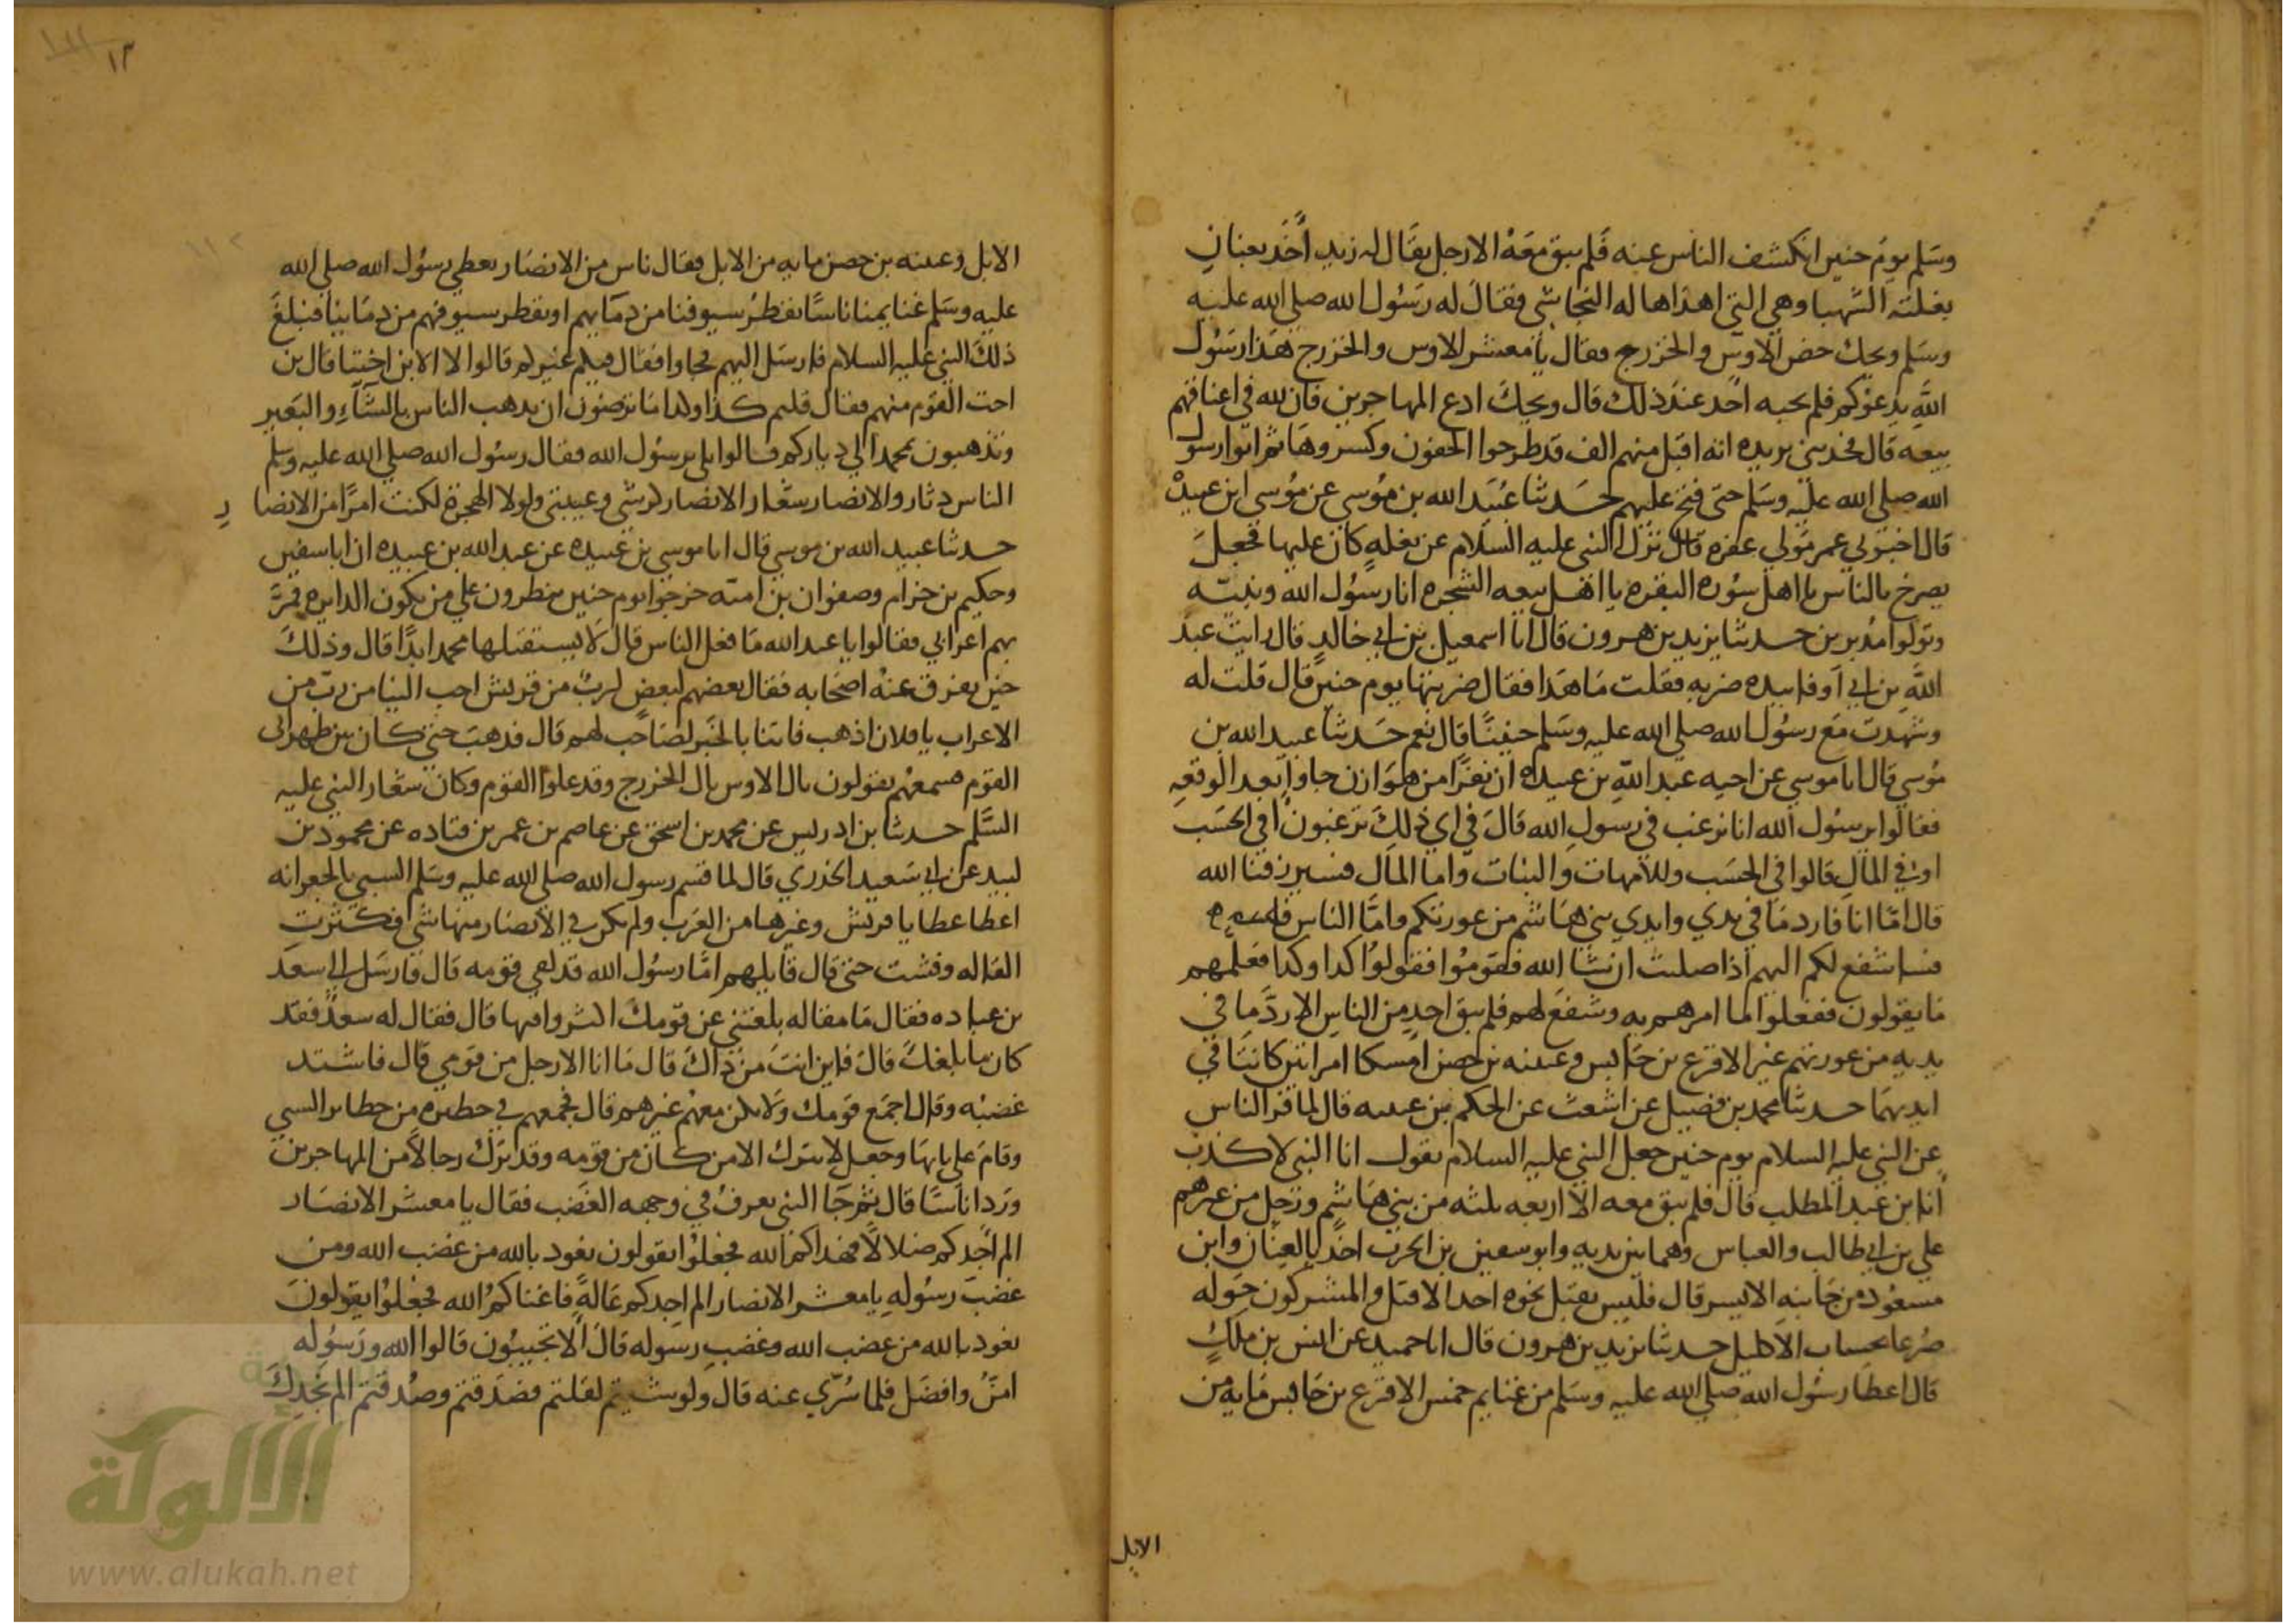 وسلم يوم حنين انكشف الناس عنه فلم يبق معه الا رجل يقال له زيد آخذ بعنان
بغلته الشهبا وهي التي اهداها له النجاشي فقال له رسول الله صلى الله عليه
وسلم ويحك حض الاوس والخزرج فقال يا معشر الاوس والخزرج هذا رسول
الله يدعوكم فلم يجبه احد عند ذلك قال ويحك ادع المهاجرين فان لله في اعناقهم
بيعه قال فحدثني بريده انه اقبل منهم الف قد طرحوا الجفون وكسروها ثم اتوا رسول
الله صلى الله عليه وسلم حتى فتح عليهم حدثنا عبيد الله بن موسي عن موسي ابن عبيدة
قال اخبرني عمر مولي غفره قال نزل النبي عليه السلام عن بغله كان عليها فجعل
يصرخ بالناس يا اهل سوره البقره يا اهل بيعه الشجره انا رسول الله ونبيه
وتولوا مدبرين حدثنا يزيد بن هرون قال انا اسمعيل بن ابي خالد قال رايت عبد
الله بن ابي اوفا بيده ضربه فقلت ما هذا فقال ضربتها يوم حنين قال قلت له
وشهدت مع رسول الله صلى الله عليه وسلم حنينا قال نعم حدثنا عبيد الله بن
موسي قال انا موسي عن اخيه عبد الله بن عبيده ان نفرا من هوازن جاوا بعد الوقعه
فقالوا يرسول الله انا نرغب في رسول الله قال في اي ذلك ترغبون افي الحسب
او في المال قالوا في الحسب وللامهات والبنات واما المال فسيرزقنا الله
قال اما انا فارد ما في يدي وايدي بني هاشم من عورتكم واما الناس
فساشفع لكم اليهم اذا صليت ان شا الله فقوموا فقولوا كدا وكدا فعلمهم
ما يقولون ففعلوا ما امرهم به وشفع لهم فلم يبق احد من الناس الا رد ما في
يديه من عورتهم غير الاقرع بن حابس وعيينه بن حصن امسكا امراتين كانتا في
ايديهما حدثنا محمد بن فضيل عن اشعث عن الحكم بن عتيبه قال لما فر الناس
عن النبي عليه السلام يوم حنين جعل النبي عليه السلام يقول انا النبي لا كذب
انا ابن عبد المطلب قال فلم يبق معه الا اربعه ثلثه من بني هاشم ورجل من غيرهم
علي بن ابي طالب والعباس وهما بين يديه وابو سفين بن الحرث اخذ بالعنان وابن
مسعود من جانبه الايسر قال فليس يقبل نحوه احد الا قتل والمشركون حوله
صرعا بحساب الاكليل حدثنا يزيد بن هرون قال انا حميد عن انس بن ملك
قال اعطا رسول الله صلى الله عليه وسلم من غنايم حنين الاقرع بن حابس مايه من
الابل
١٣
١١٢
الابل وعيينه بن حصن مايه من الابل فقال ناس من الانصار يعطي رسول الله صلى الله
عليه وسلم غنايمنا ناسا تقطر سيوفنا من دمايهم او تقطر سيوفهم من دماينا فبلغ
ذلك النبي عليه السلام فارسل اليهم فجاوا فقال فيكم غيركم قالوا لا الا ابن اختنا قال بن
اخت القوم منهم فقال قلتم كذا وكذا اما ترضون ان يذهب الناس بالشاء والبعير
وتذهبون بمحمد الي دياركم قالوا بلي يرسول الله فقال رسول الله صلى الله عليه وسلم
الناس دثار والانصار شعار الانصار كرشي وعيبتي ولولا الهجرة لكنت امرا من الانصار
حدثنا عبيد الله بن موسي قال انا موسي بن عبيده عن عبد الله بن عبيده ان ابا سفين
وحكيم بن حزام وصفوان بن اميه خرجوا يوم حنين ينظرون علي من تكون الدايره فمر
بهم اعرابي فقالوا يا عبد الله ما فعل الناس قال لا يستقبلها محمد ابدا قال وذلك
حين تفرق عنه اصحابه فقال بعضهم لبعض لرب من قريش احب الينا من رب من
الاعراب يا فلان اذهب فاتنا بالخبر لصاحب لهم قال فذهب حتي كان بين ظهراني
القوم فسمعهم يقولون يال الاوس يال الخزرج وقد علوا القوم وكان شعار النبي عليه
السلم حدثنا بن ادريس عن محمد بن اسحق عن عاصم بن عمر بن قتاده عن محمود بن
لبيد عن ابي سعيد الخدري قال لما قسم رسول الله صلى الله عليه وسلم السبي بالجعرانه
اعطا عطايا قريش وغيرها من العرب ولم يكن في الانصار منها شي فكثرت
القاله وفشت حتي قال قايلهم اما رسول الله قد لقي قومه قال فارسل الي سعد
بن عباده فقال ما مقاله بلغتني عن قومك اكثروا فيها قال فقال له سعد فقد
كان ما بلغك قال فاين انت من ذاك قال ما انا الا رجل من قومي قال فاشتد
غضبه وقال اجمع قومك ولا يكن معهم غيرهم قال فجمعهم في حظيره من حظاير السبي
وقام علي بابها وجعل لا يترك الا من كان من قومه وقد ترك رجالا من المهاجرين
ورد اناسا قال ثم جا النبي يعرف في وجهه الغضب فقال يا معشر الانصار
الم اجدكم ضلالا فهداكم الله فجعلوا يقولون نعوذ بالله من غضب الله ومن
غضب رسوله يا معشر الانصار الم اجدكم عالة فاغناكم الله فجعلوا يقولون
نعوذ بالله من غضب الله وغضب رسوله قال الا تجيبون قالوا الله ورسوله
امن وافضل فلما سري عنه قال ولو شيتم لقلتم فصدقتم وصدقتم الم نجدك
الألوكة
www.alukah.net